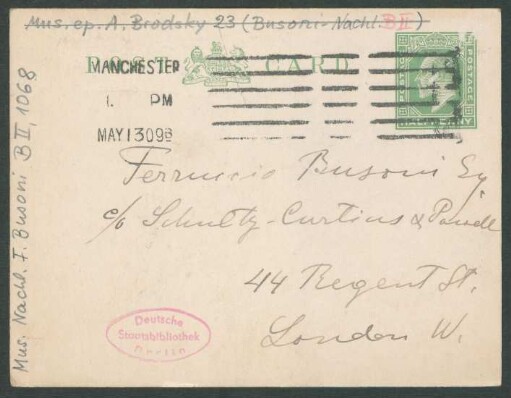 Mus. ep. A. Brodsky 23 (Busoni-Nachl. B II)
POST CARD
MANCHESTER
1. PM
MAY 13 09
POSTAGE
HALFPENNY
Ferruccio Busoni Esq.
c/o Schultz-Curtius & Powell
44 Regent St.
London W.
Deutsche
Staatsbibliothek
Berlin
Mus. Nachl. F. Busoni B II, 1068